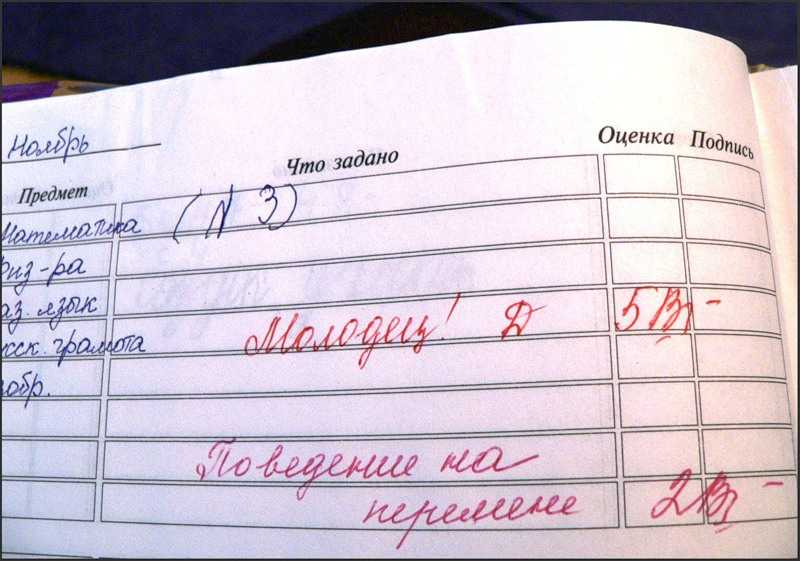 Ноябрь
Предмет Что задано Оценка Подпись
Математика (N 3)
Физ-ра
аз. язык
Молодец! Д 5
сск. грамота
обр.
Поведение на
перемене 2